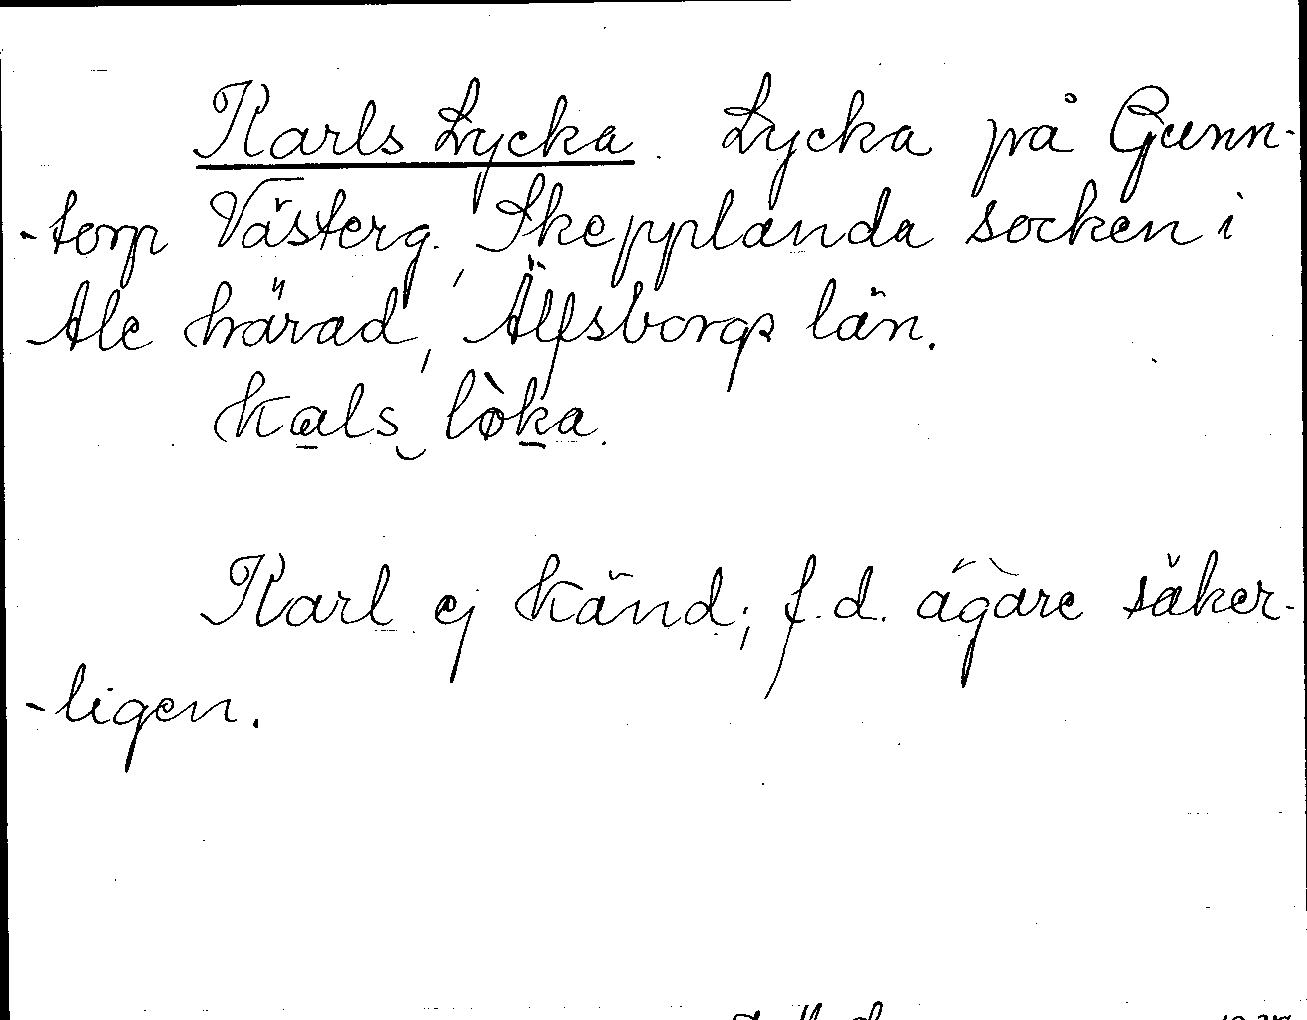 Karls Lycka. Lycka på Gunn-
-torp Västerg., Skepplanda socken i
Ale härad, Älfsborgs län.
kals lòka.
Karl ej känd; f.d. ägare säker-
-ligen.